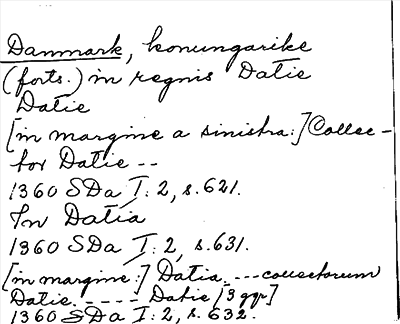 Danmark, konungarike
(forts.) in regnis Datie
Datie
[in margine a sinistra:] Collec-
tor Datie --
1360 SDa I: 2, s. 621.
In Datia
1360 SDa I: 2, s. 631.
[in margine:] Datia ---collectorum
Datie. ---- Datie [3 ggr]
1360 SDa I: 2, s. 632.